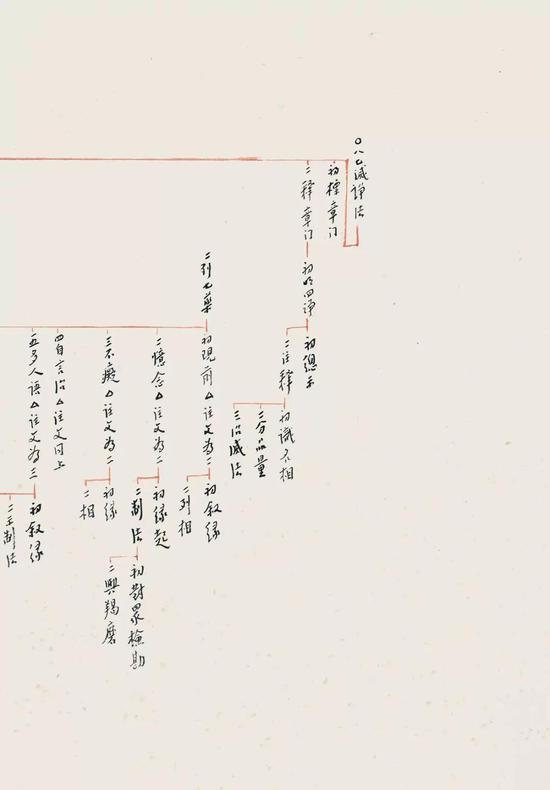 〇八七滅諍法
初標章门
二釋章门
初明四諍
初總示
二注釋
初識不相
二分品量
三治滅法
二列七藥
初現前△注文為二
初叙缘
二列相
二憶念△注文為二
初缘起
二制法
初對眾檢勘
二興羯磨
三不癡△注文為二
初缘
二相
四自言治△注文同上
五多人語△注文為三
初叙缘
二正制法